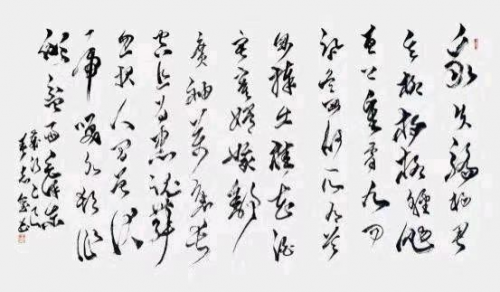 我失骄杨君
失柳杨柳轻飏
直上重霄九问
讯吴刚何所有吴
刚捧出桂花酒
寂寞嫦娥舒
广袖万里长
空且为忠魂舞
忽报人间曾伏
虎泪飞顿作
倾盆雨毛泽东